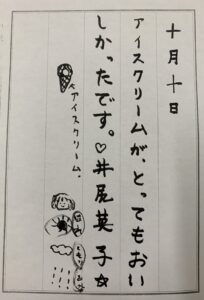 十月十日
アイスクリームが、とってもおい
しかったです。♡井尻英子☆
アイスクリーム.
はれ
くもり